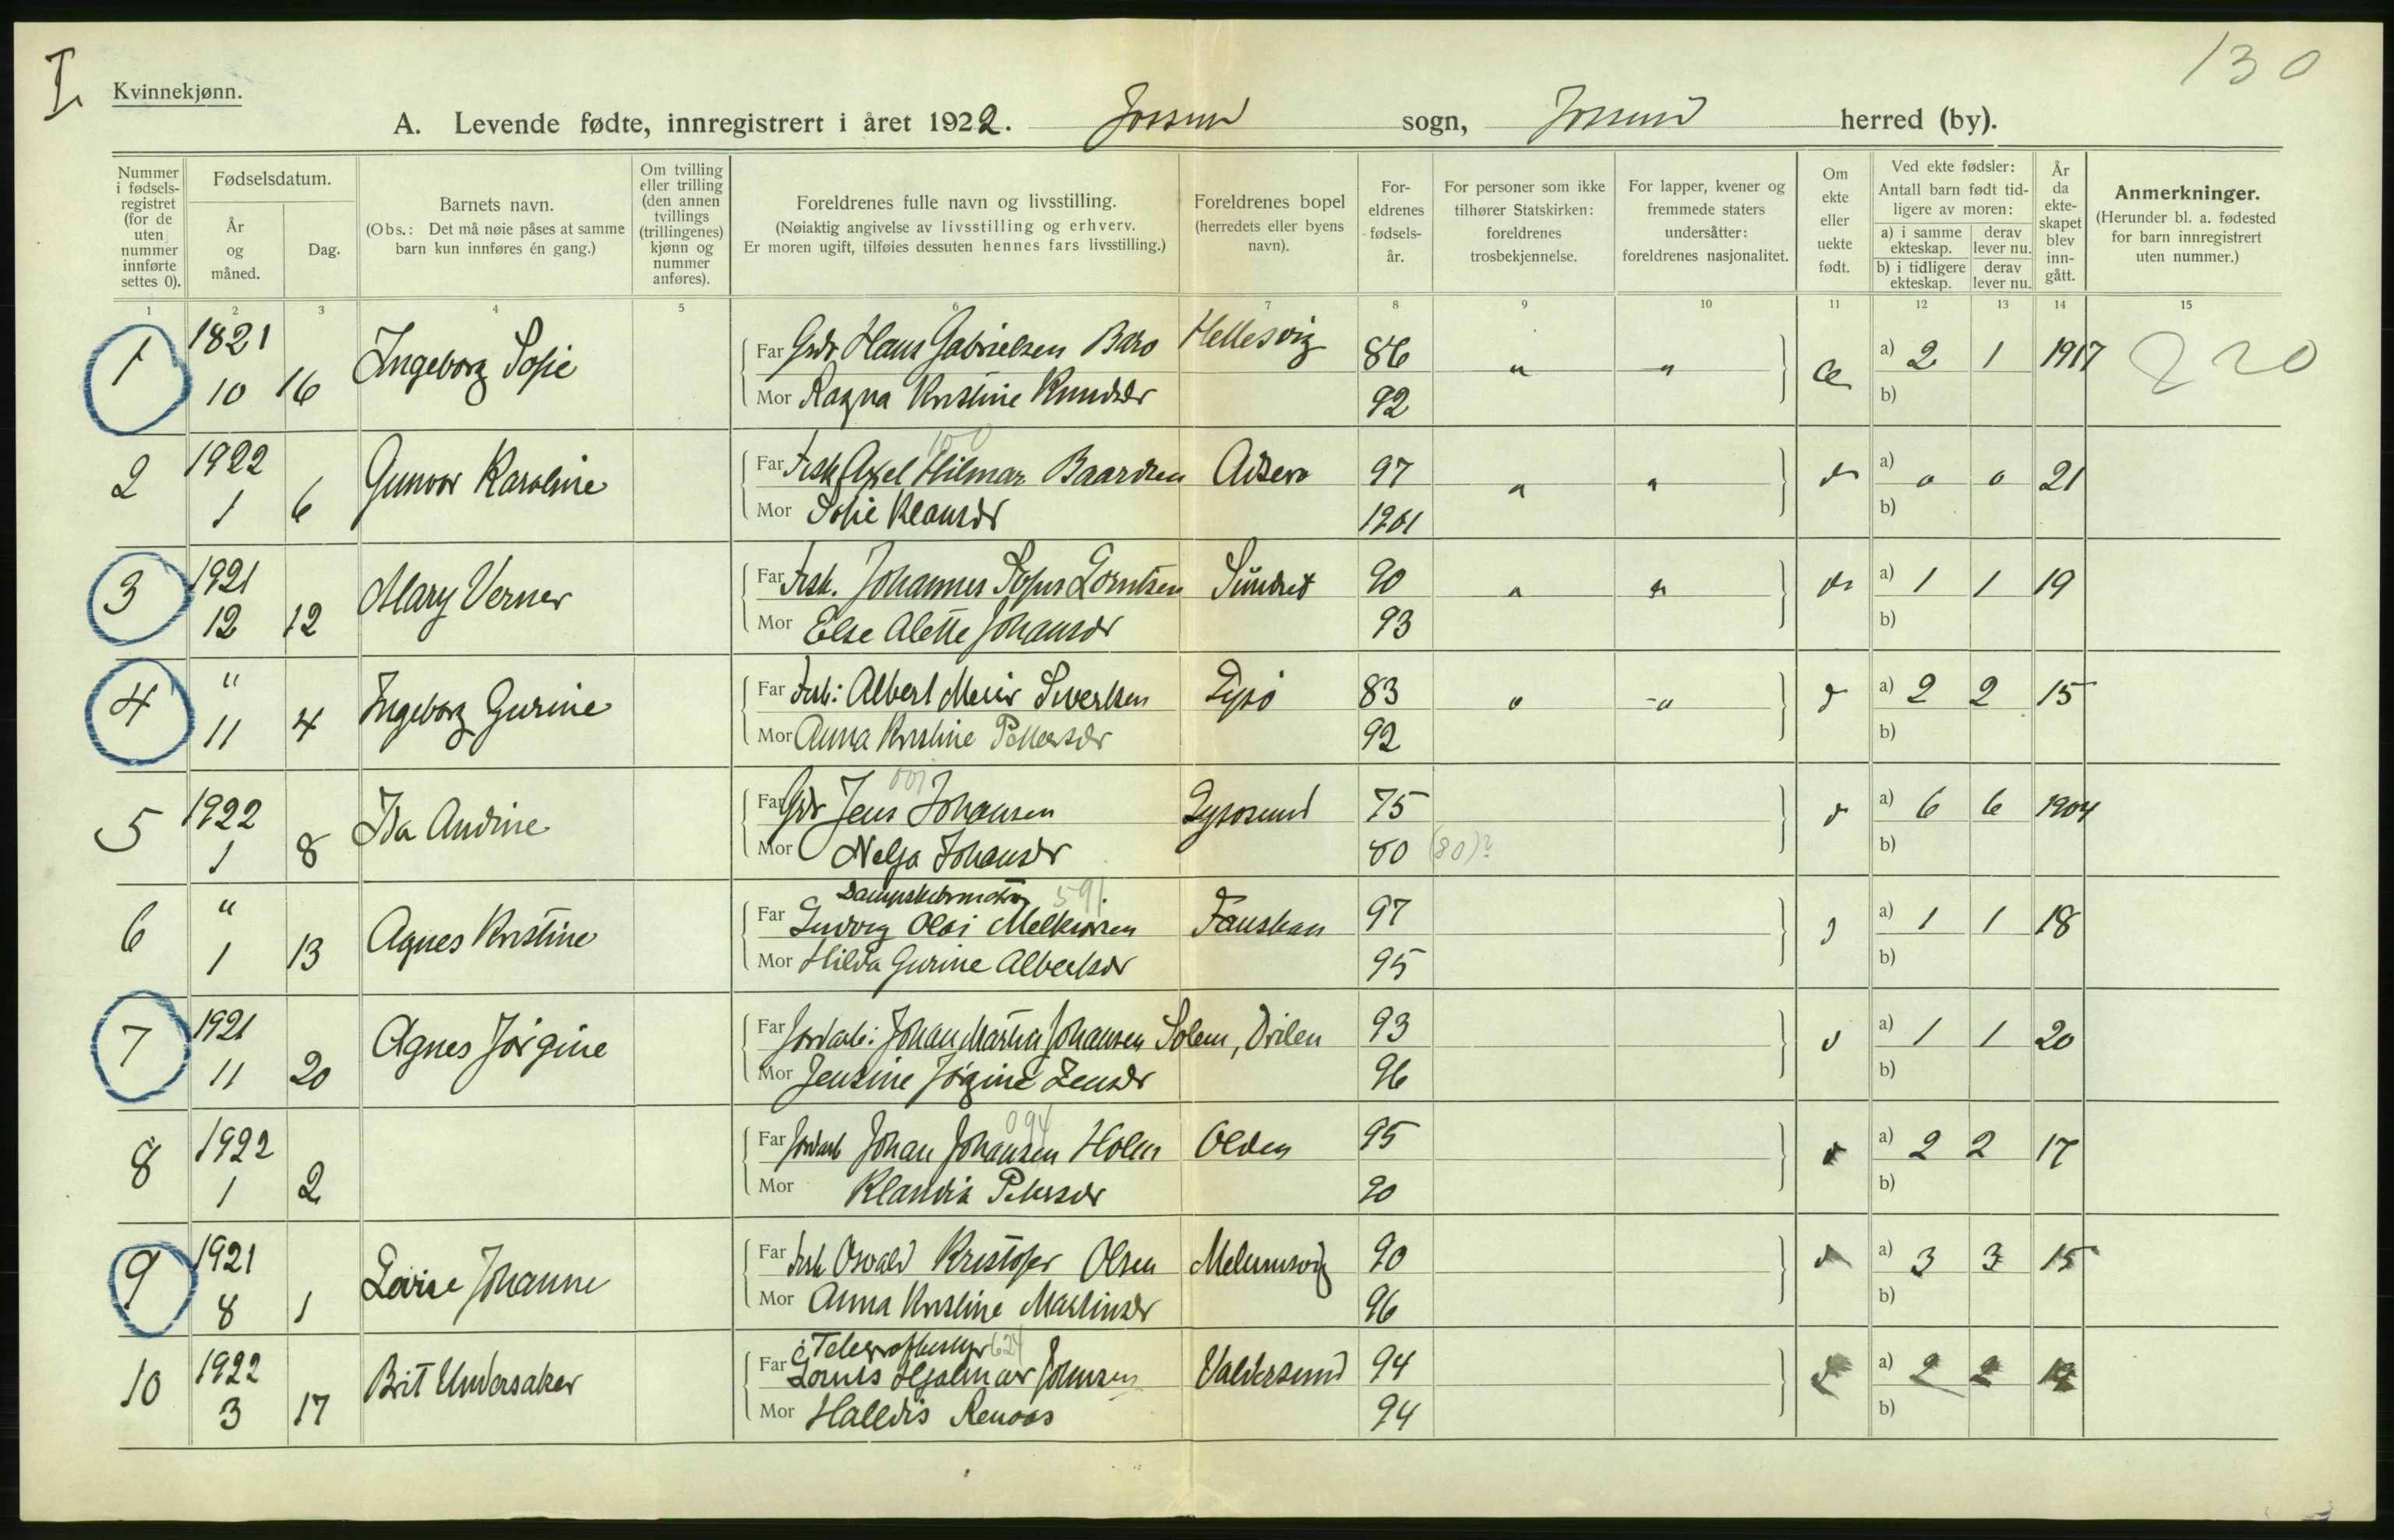 I
130
Kvinnekjønn.
A. Levende fødte, innregistrert i året 1922. Jossund sogn, Jossund herred (by).
Nummer i fødsels-registret (for de uten nummer innførte settes 0).
Fødselsdatum.
År og måned.
Dag.
Barnets navn.
(Obs.: Det må nøie påses at samme barn kun innføres én gang.)
Om tvilling eller trilling (den annen tvillings (trillingenes) kjønn og nummer anføres).
Foreldrenes fulle navn og livsstilling.
(Nøiaktig angivelse av livsstilling og erhverv.
Er moren ugift, tilføies dessuten hennes fars livsstilling.)
Foreldrenes bopel
(herredets eller byens navn).
For-eldrenes fødsels-år.
For personer som ikke tilhører Statskirken: foreldrenes trosbekjennelse.
For lapper, kvener og fremmede staters undersåtter: foreldrenes nasjonalitet.
Om ekte eller uekte født.
Ved ekte fødsler:
Antall barn født tid-ligere av moren:
a) i samme ekteskap.
derav lever nu.
b) i tidligere ekteskap.
derav lever nu.
År da ekte-skapet blev inn-gått.
Anmerkninger.
(Herunder bl. a. fødested for barn innregistrert uten nummer.)
1 2 3 4 5 6 7 8 9 10 11 12 13 14 15
1 1821 10 16 Ingeborg Sofie
Far Gbr Hans Gabrielsen Baro Hellesvig 86 " " a) 2 1 1917 220
Mor Ragna Kristine Knudsdr 92 b)
2 1922 1 6 Gunvor Karoline
Far Fisk Axel Hilmar Baardsen 97 " " a) 0 0 21
Mor Sofie Klausdr 1901 b)
3 1921 12 12 Mary Verner
Far Fisk. Johannes Sofus Lorntsen Sundet 90 " " a) 1 1 19
Mor Else Alette Johansdr 93 b)
4 " 11 4 Ingeborg Gurine
Far Fisk: Albert Meier Sivertsen Lysø 83 a) 2 2 15
Mor Anna Kristine Pettersdr 92 b)
5 1922 1 8 Ida Andine
Far Gbr Jens Johansen Lysøsund 75 a) 6 6 1904
Mor Nelja Johansdr 80 (80)? b)
6 " 1 13 Agnes Kristine
591
Far Ludvig Olai Melkiorsen Fauskan 97 a) 1 1 18
Mor Hilda Gurine Albertsdr 95 b)
7 1921 11 20 Agnes Jørgine
Far Jordarb: Johan Martin Johansen Solem, Ovilen 93 a) 1 1 20
Mor Jensine Jørgine Zensdr 96 b)
8 1922 1 2
094
Far Jordarb Johan Johansen Holm Olden 95 a) 2 2 17
Mor Klaudia Petersdr 90 b)
9 1921 8 1 Lovise Johanne
Far Fisk Osvald Kristofer Olsen Melumsvig 90 a) 3 3 15
Mor Anna Kristine Martinsdr 96 b)
10 1922 3 17 Brit Undersaker
Telegrafbestyr 624
Far Lornts Hjalmar Johnsen Valdersund 94 a) 2 2
Mor Halldis Renaas 94 b)